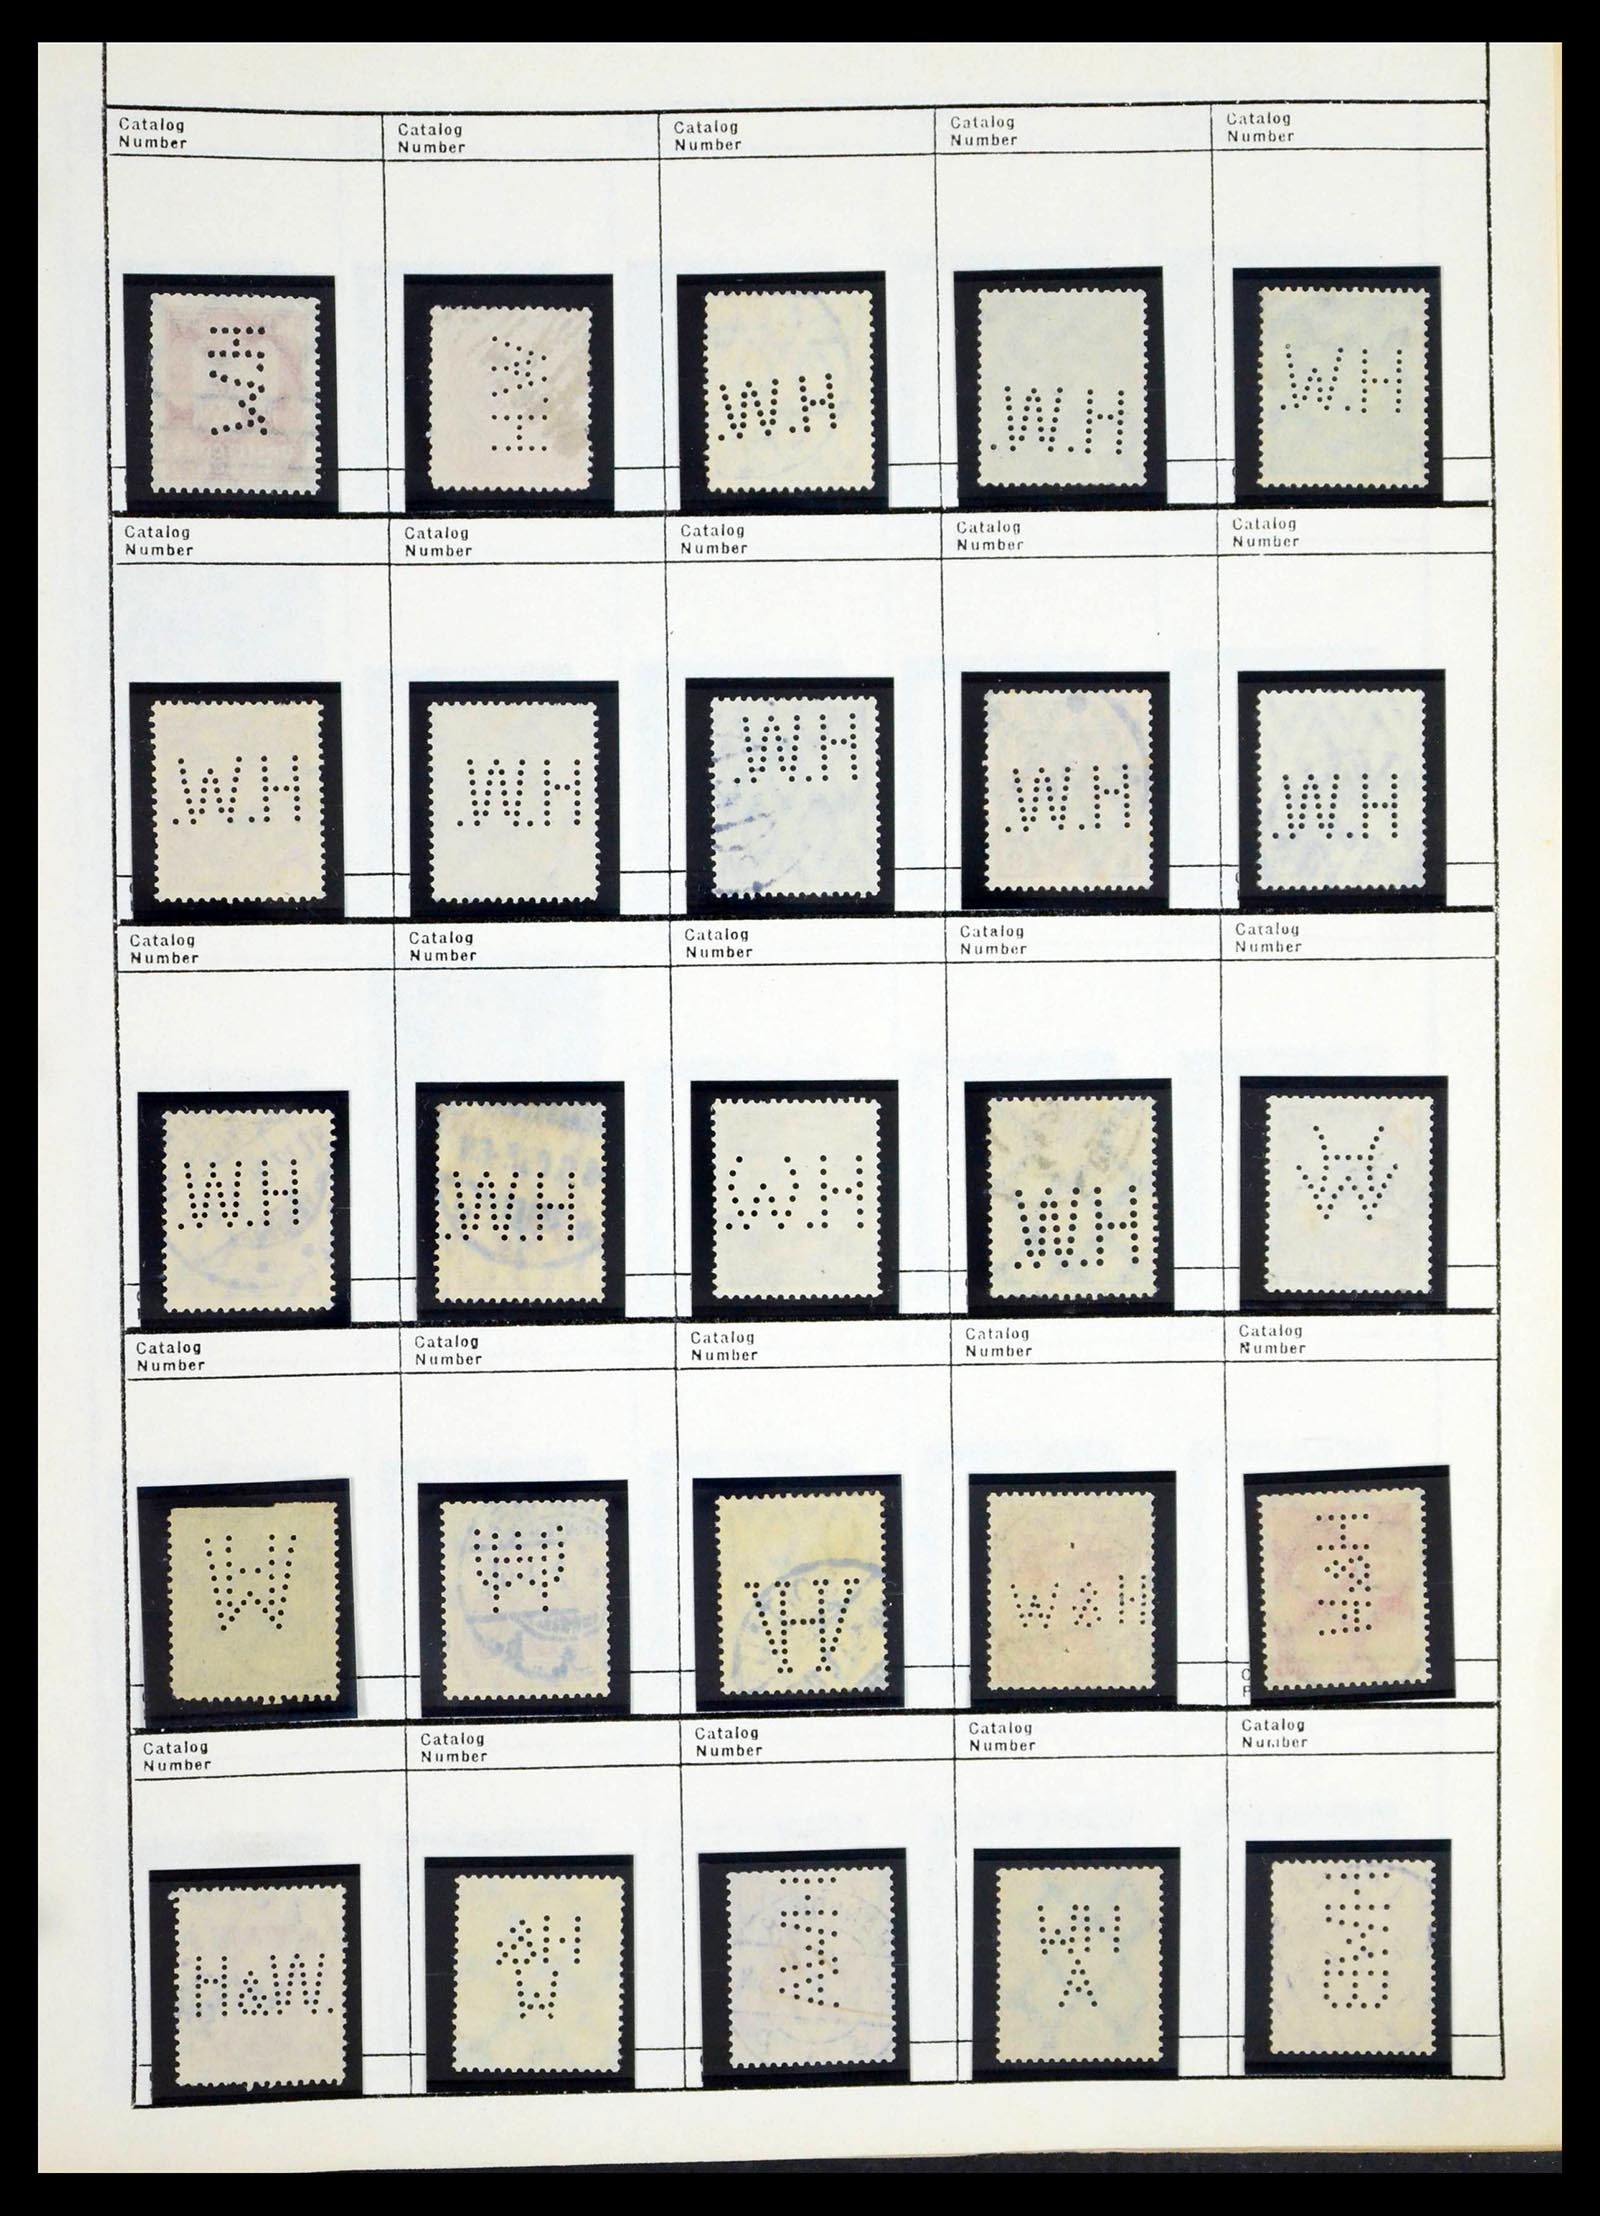 Catalog Number
Catalog Number
Catalog Number
Catalog Number
Catalog Number
W.H
.W.H
.W.H
Catalog Number
Catalog Number
Catalog Number
Catalog Number
Catalog Number
.W.H
.W.H
.W.H
.W.H
.W.H
Catalog Number
Catalog Number
Catalog Number
Catalog Number
Catalog Number
.W.H
.W.H
W.H
.W.H
Catalog Number
Catalog Number
Catalog Number
Catalog Number
Catalog Number
W & H
Catalog Number
Catalog Number
Catalog Number
Catalog Number
Catalog Number
H&W.
&H
W
WH
A